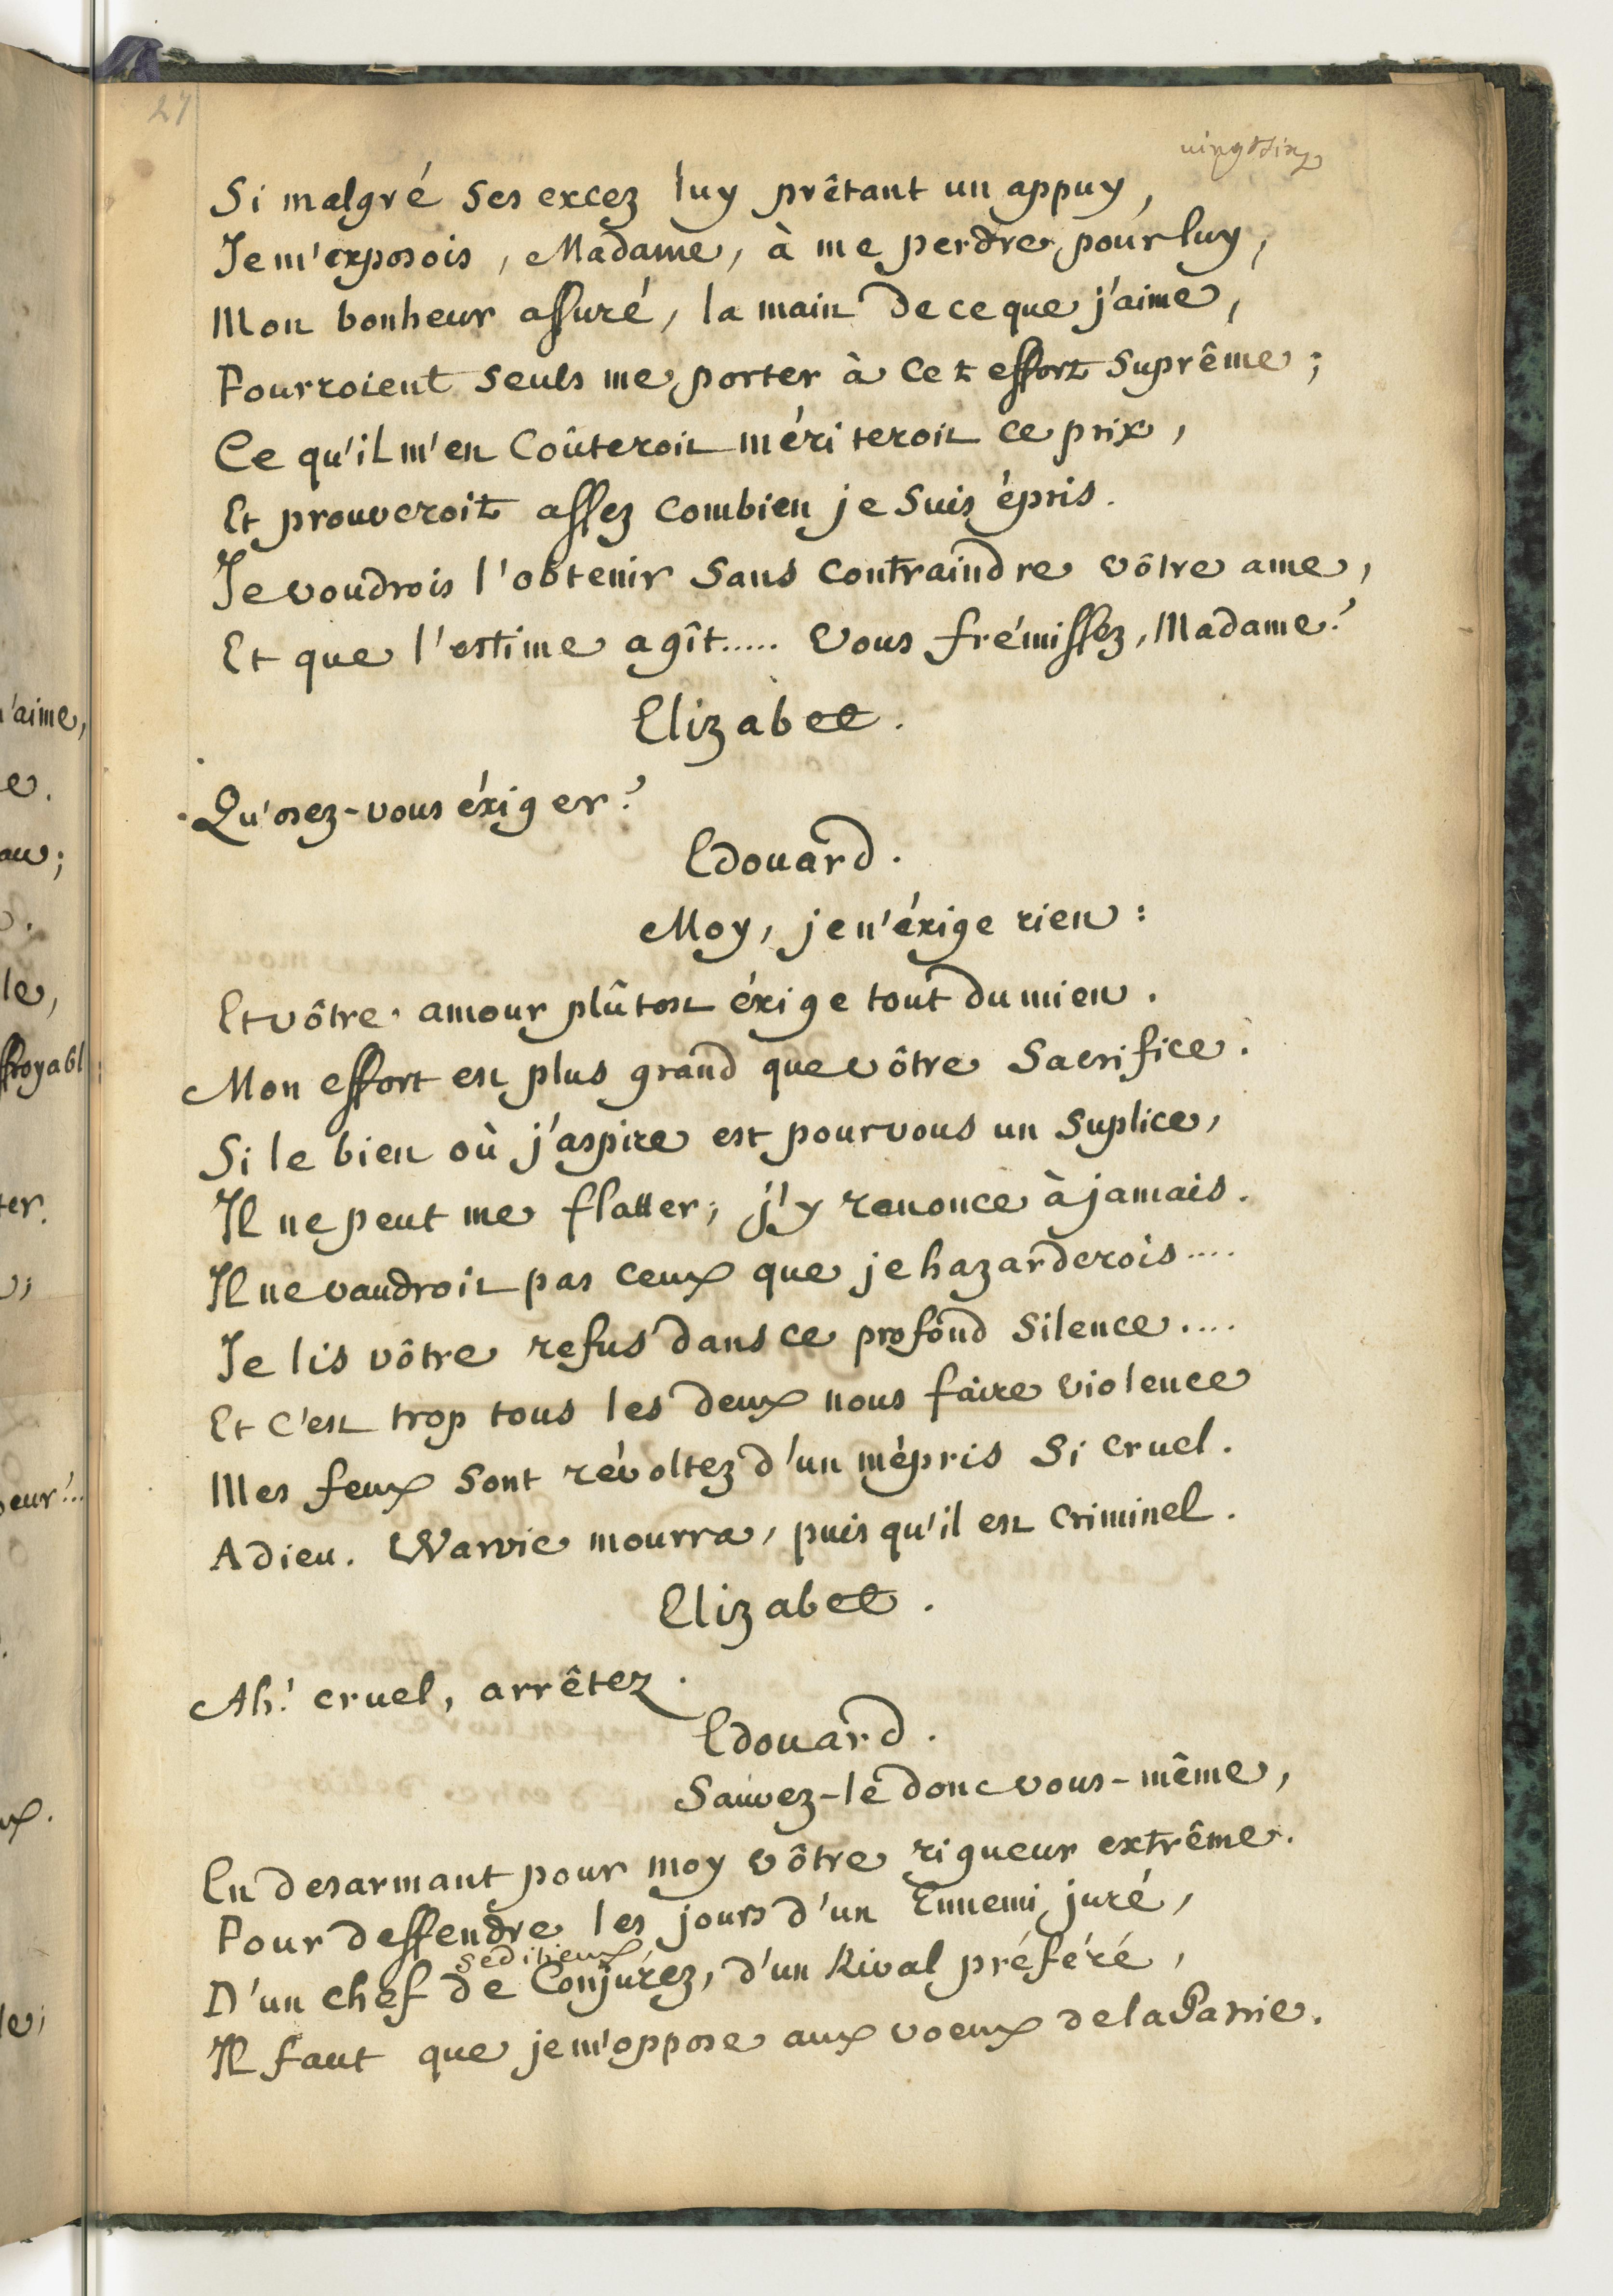 27
vingt six
Si malgré ses excez luy prêtant un appuy,
Je m'exposois, Madame, à me perdre pour luy,
Mon bonheur assuré, la main de ce que j'aime,
Pourroient seuls me porter à cet effort suprême;
Ce qu'il m'en coûteroit mériteroit ce prix,
Et prouveroit assez combien je suis épris.
Je voudrois l'obtenir sans contraindre vôtre ame,
Et que l'estime agît..... Vous frémissez, Madame?
Elizabet.
Qu'osez-vous éxiger?
Edouard.
Moy, je n'éxige rien:
Et vôtre amour plûtost éxige tout du mien.
Mon effort est plus grand que vôtre Sacrifice.
Si le bien où j'aspire est pour vous un Suplice,
Il ne peut me flatter; j'y renonce à jamais.
Il ne vaudroit pas ceux que je hazarderois....
Je lis vôtre refus dans ce profond Silence....
Et c'est trop tous les deux nous faire violence
Mes feux sont révoltez d'un mépris si cruel.
Adieu. Warvic mourra, puis qu'il est criminel.
Elizabet.
Ah! cruel, arrêtez.
Edouard.
Sauvez-le donc vous-même,
En desarmant pour moy vôtre rigueur extrême.
Pour deffendre les jours d'un Ennemi juré,
seditieux
D'un chef de Conjurez, d'un Rival préféré,
Il faut que je m'oppose aux voeux de la Patrie.
'aime,
e.
au;
le,
ffroyabl
ter.
eur!...
ux.
le;